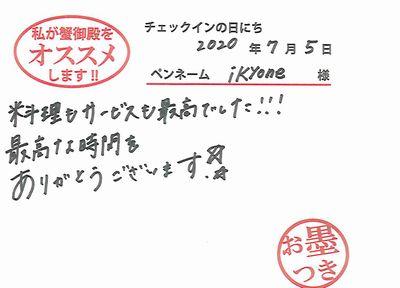 私が蟹御殿を
オススメ
します!!
チェックインの日にち
2020 年 7 月 5 日
ペンネーム ikyone 様
料理もサービスも最高でした!!!
最高な時間を
ありがとうございます!☆☆
お墨
つき